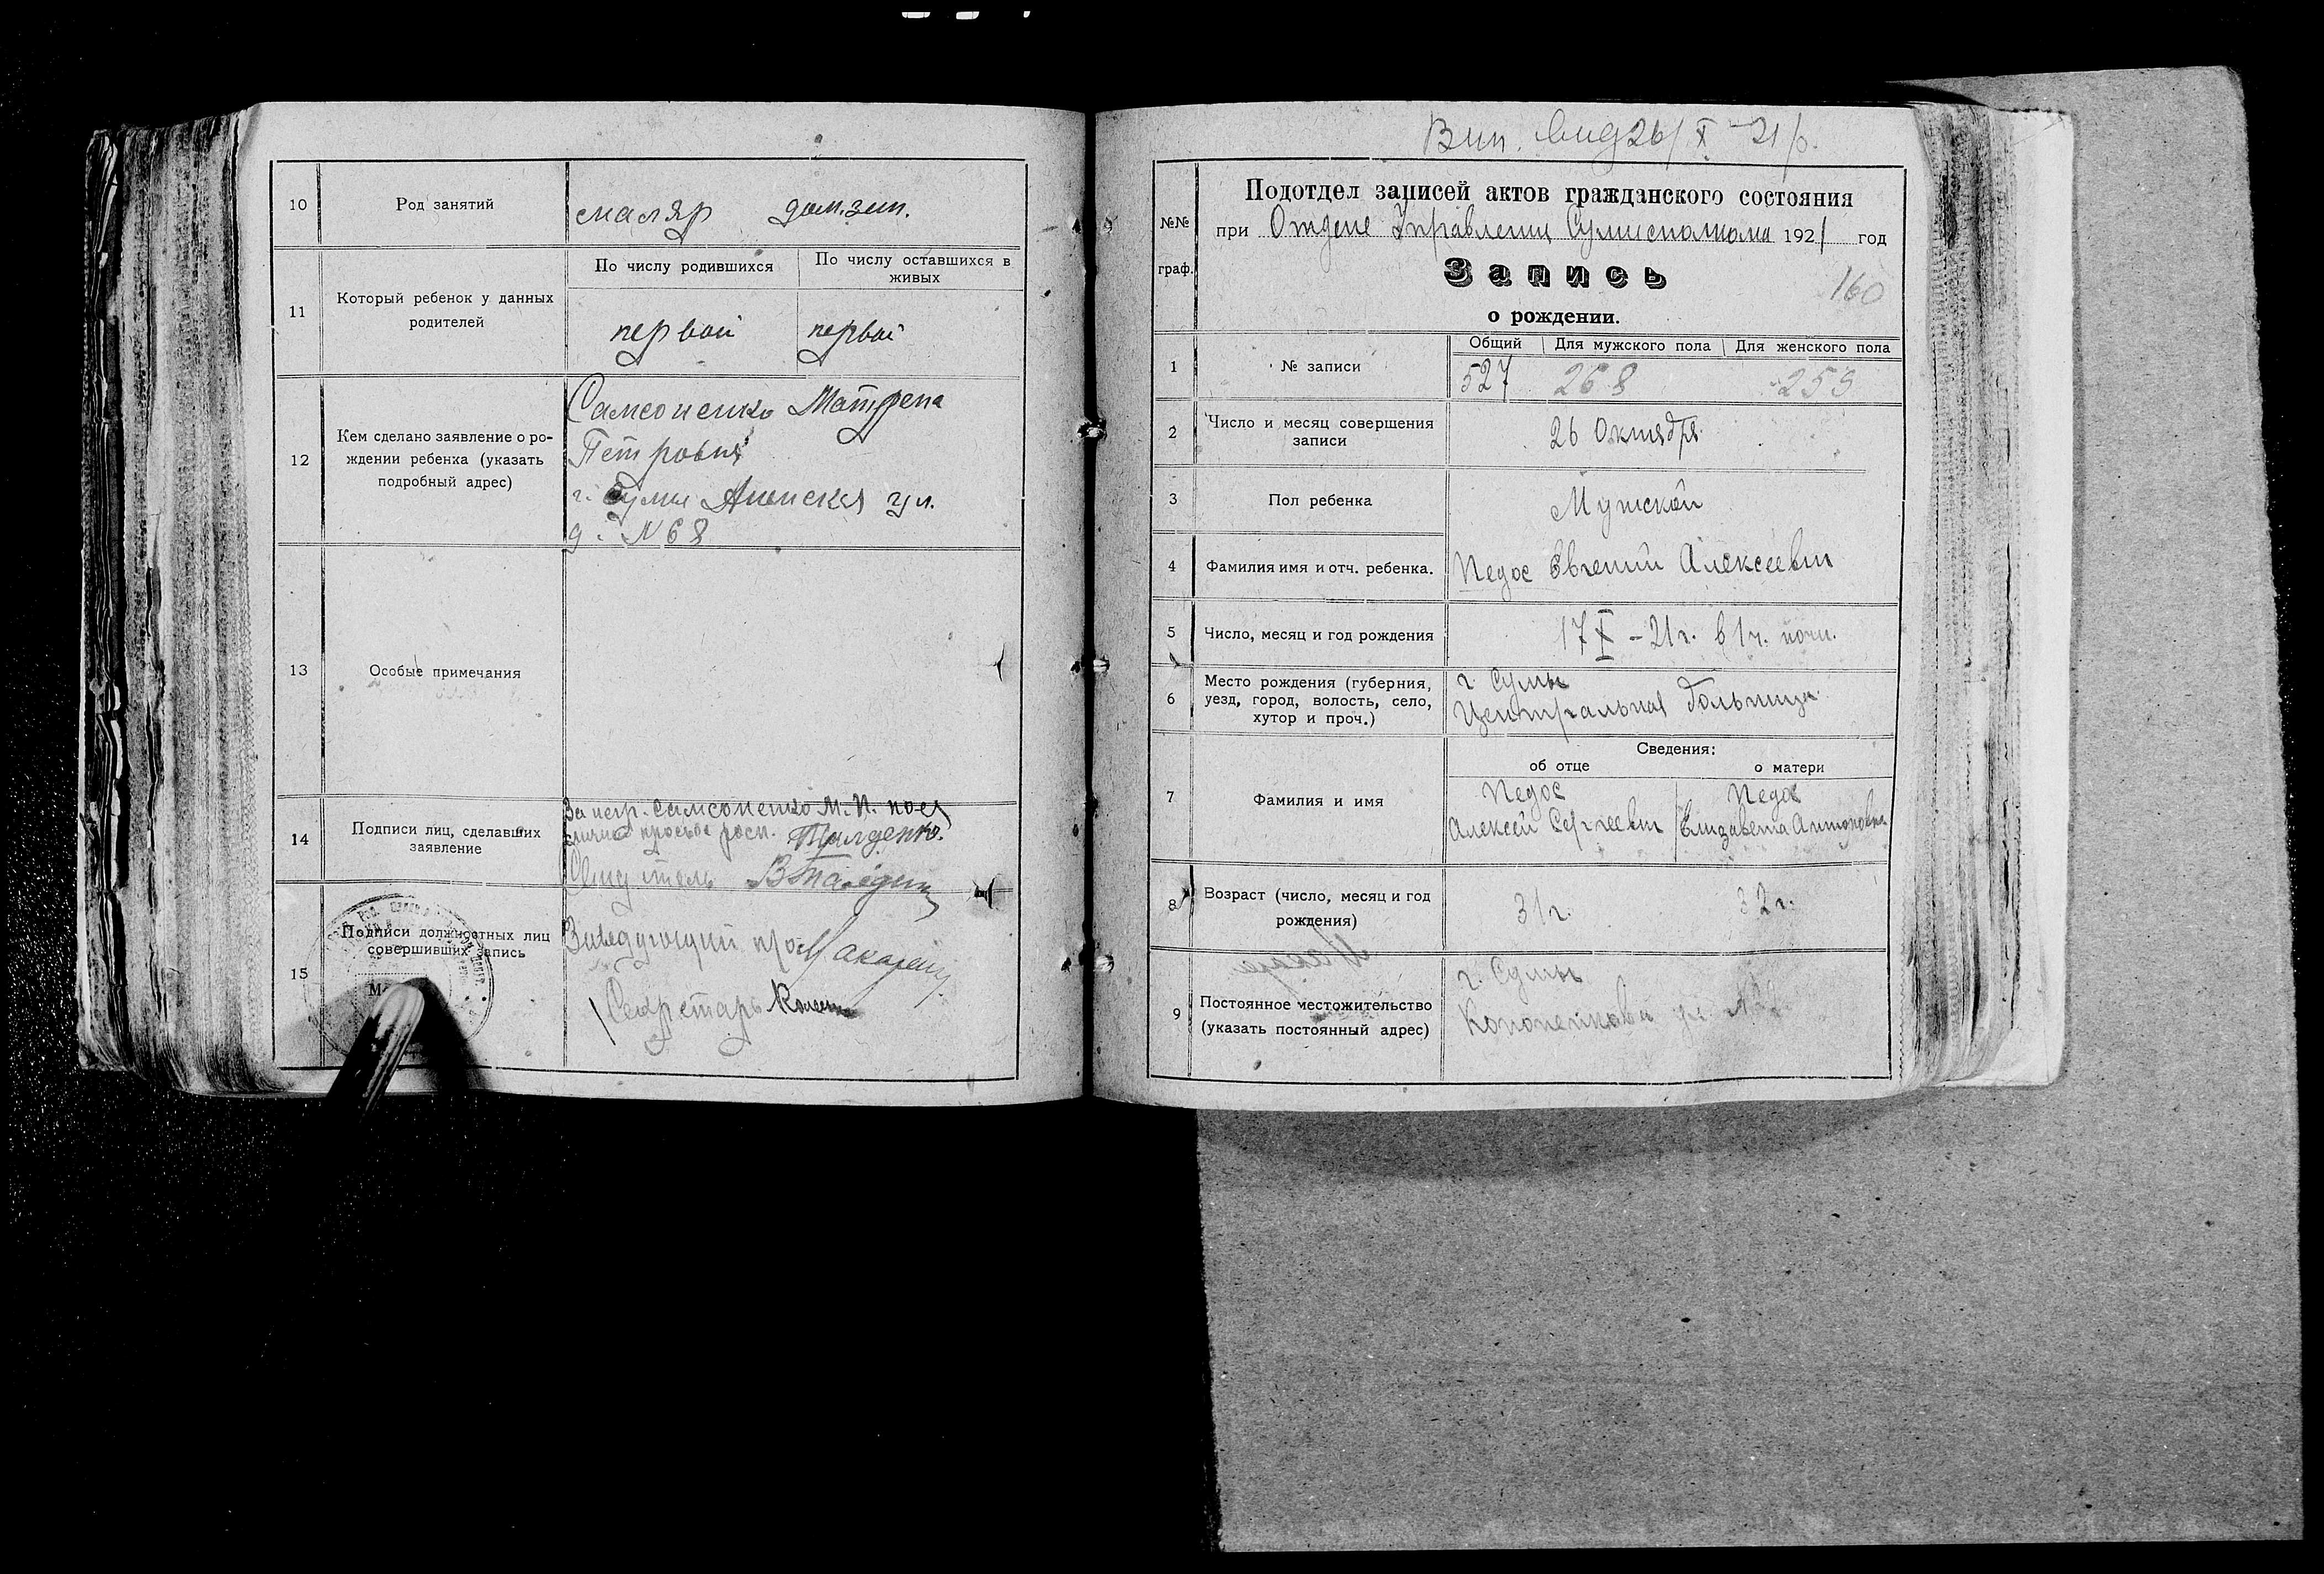 10 Род занятий маляр дом.
11 Который ребенок у данных родителей
По числу родившихся По числу оставшихся в живых
первый первый
12 Кем сделано заявление о рождении ребенка (указать подробный адрес)
Самсоненко Матрена
Петровна
г. Сумы ул.
д. № 68
13 Особые примечания
14 Подписи лиц, сделавших заявление
За негр. Самсоненко М. П. по ея
личной просьбе росп.
Свидетель
15 Подписи должностных лиц совершивших запись
Заведующий
Секретарь
26/X-21 р.
№№ граф.
Подотдел записей актов гражданского состояния
при Отделе Управления Сумисполкома 1921 год
Запись
160
о рождении.
1 № записи
Общий Для мужского пола Для женского пола
527 268 259
2 Число и месяц совершения записи
26 Октября
3 Пол ребенка
Мужской
4 Фамилия имя и отч. ребенка.
Педос Евгений Алексеевич
5 Число, месяц и год рождения
17 X - 21 г. в 1 ч. ночи.
6 Место рождения (губерния, уезд, город, волость, село, хутор и проч.)
г. Сумы
Центральная больница
Сведения:
об отце о матери
7 Фамилия и имя
Педос Педос
Алексей Сергеевич Елизавета Антоновна
8 Возраст (число, месяц и год рождения)
31 г. 32 г.
9 Постоянное местожительство (указать постоянный адрес)
г. Сумы
ул. №